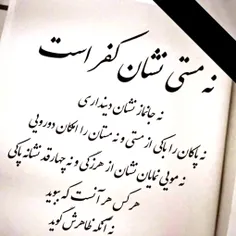 نه مستی نشان کفر است
نه جانماز نشان دینداری
نه پاکان را باکی از مستی و نه مستان را امکان دورویی
نه مویی نمایان نشان از هرزگی و نه چهارقد نشانه پاکی
هر کس هر آنست که بوید
نه آنکه ظاهرش گوید